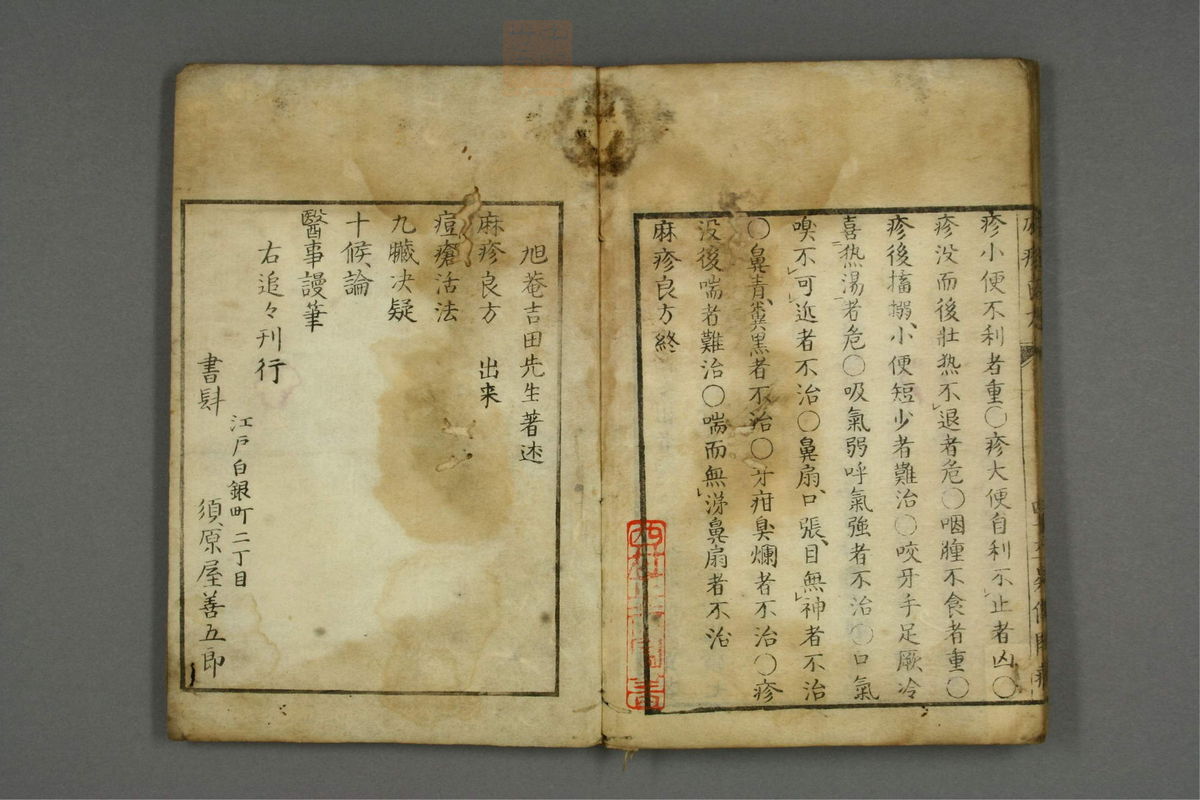 疹小便不利者重〇疹大便自利不止者凶〇
疹没而後壮热不退者危〇咽腫不食者重〇
疹後搐搦小便短少者難治〇咬牙手足厥冷
喜热湯者危〇吸氣弱呼氣強者不治〇口氣
嗅不可近者不治〇鼻扇口張目無神者不治
〇鼻青糞黒者不治〇牙疳臭爛者不治〇疹
没後喘者難治〇喘而無涕鼻扇者不治
麻疹良方終
旭菴吉田先生著述
麻疹良方 出来
痘瘡活法
九臓决疑
十候論
醫事謾筆
右追々刊行
江戸白銀町二丁目
書肆 須原屋善五郎